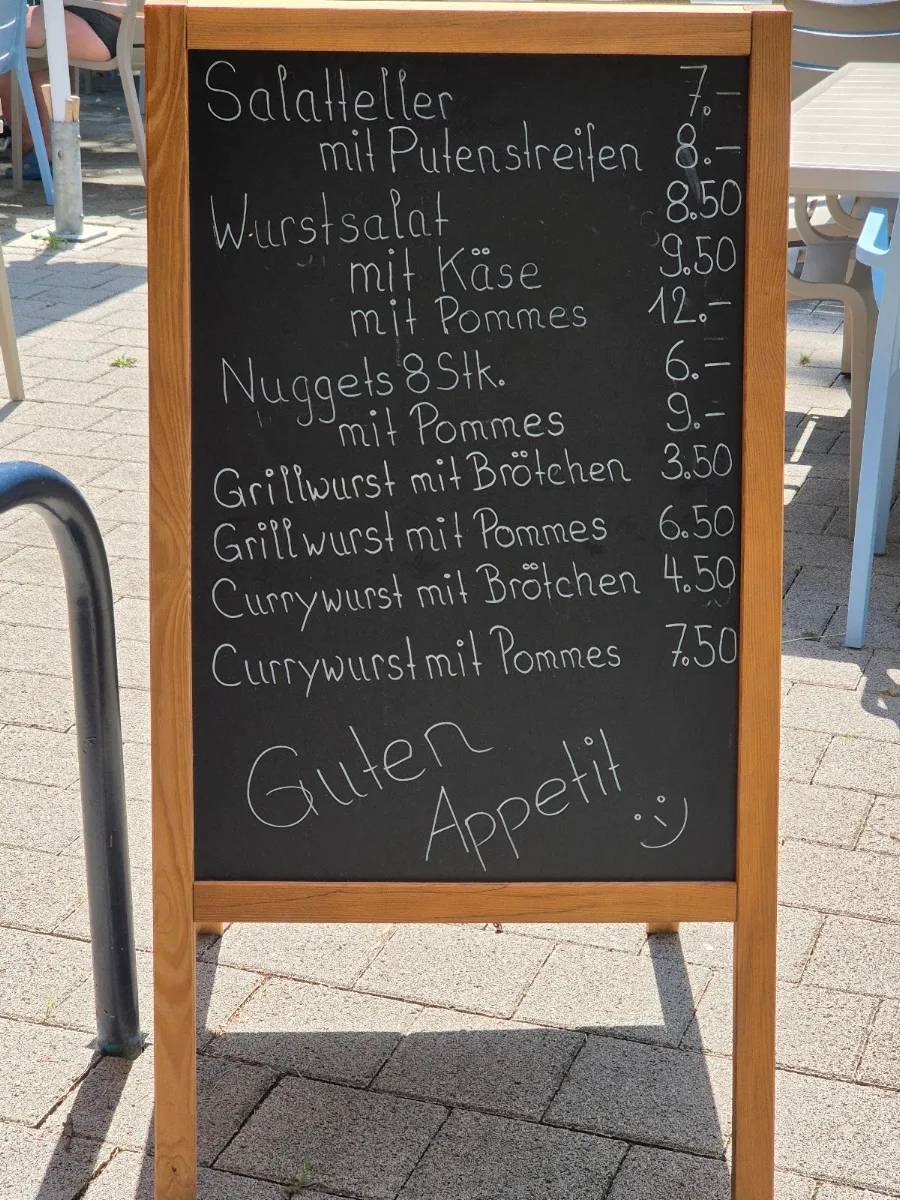 Salatteller 7.–
mit Putenstreifen 8.–
Wurstsalat 8.50
mit Käse 9.50
mit Pommes 12.–
Nuggets 8 Stk. 6.–
mit Pommes 9.–
Grillwurst mit Brötchen 3.50
Grillwurst mit Pommes 6.50
Currywurst mit Brötchen 4.50
Currywurst mit Pommes 7.50
Guten
Appetit